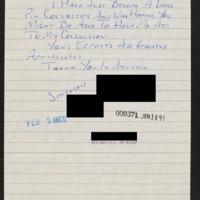 I Have Just Become A Lapel
Pin Collector And Was Hoping You
Might Be Able To Help Me Add
To My Collection.
Your Efforts Are Greatly
Appreciated.
Thank You In Advance.
Sincerely
000371 JAN 14 91
FEB 5